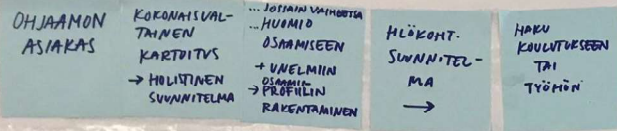 OHJAAMON
ASIAKAS
KOKONAISVAL-
TAINEN
KARTOITUS
→ HOLISTINEN
SUUNNITELMA
... JOSSAIN VAIHEESSA
... HUOMIO
OSAAMISEEN
+ UNELMIIN
OSAAMIS
→ PROFIILIN
RAKENTAMINEN
HLÖKOHT.
SUUNNITEL-
MA
→
HAKU
KOULUTUKSEEN
TAI
TYÖHÖN